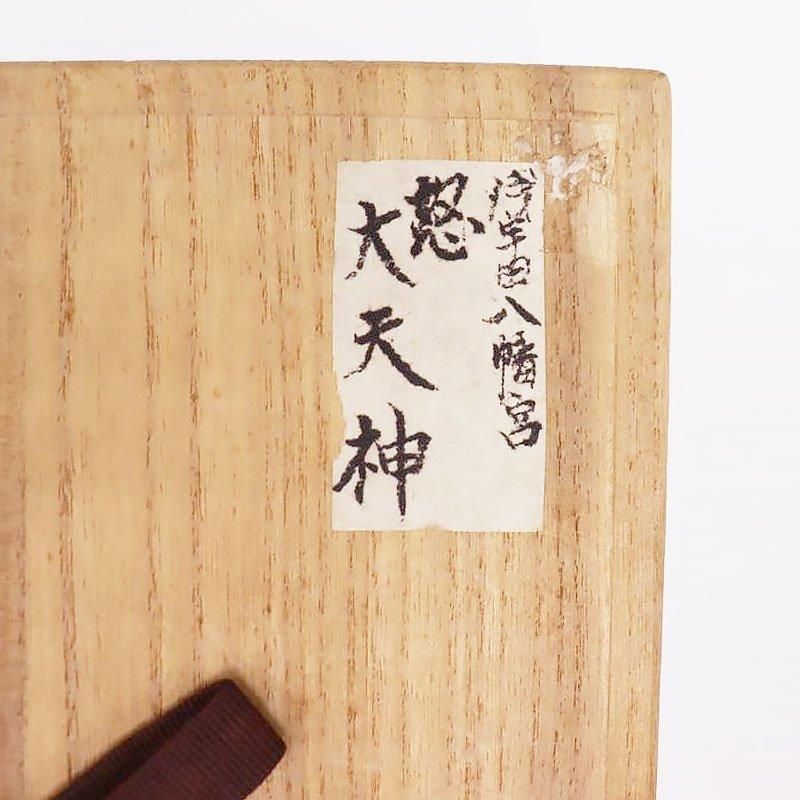 田八幡宮
怒
大天神